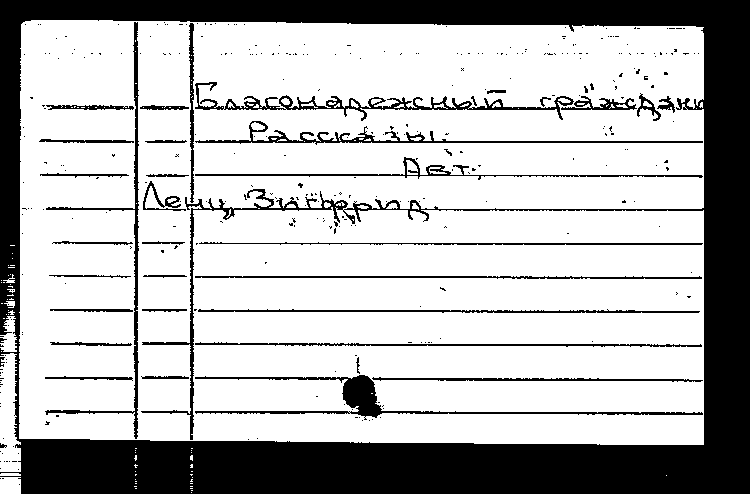 Благонадежный граждани
Рассказы.
Авт.:
Ленц, Зигфрид.